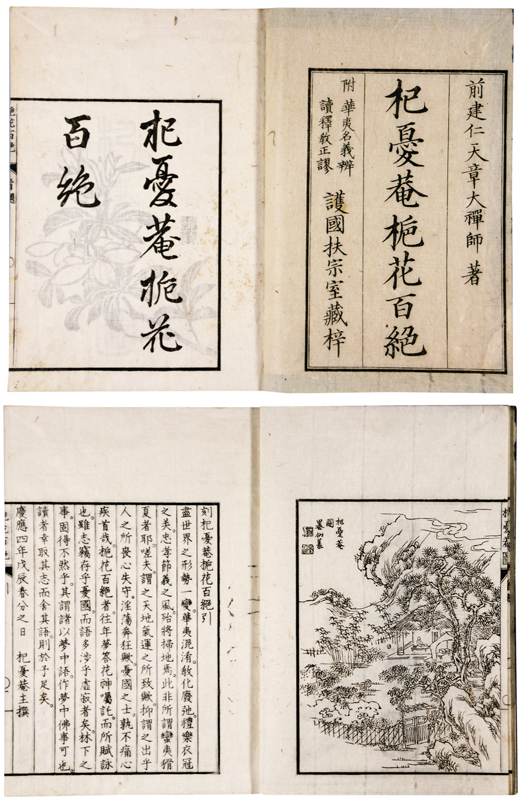 前建仁天章大禪師 著
杞憂菴梔花百絕
附 華夷名義辨
讀釋教正謬
護國扶宗室藏梓
杞憂菴梔花
百絶
杞憂菴
圖
刻杞憂菴梔花百絕引
盡世界之形勢一變。華夷混淆。教化廢弛。禮樂衣冠
之美。忠孝節義之風。殆將掃地焉。此非所謂蠻夷猾
夏者耶。嗟夫謂之天地氣運之所致歟。抑謂之出乎
人之所喪心失守。淫蕩奔狂歟。憂國之士。孰不痛心
疾首哉。梔花百絕者。往年夢花神囑託。而所賦詠
也。雖志竊存乎憂國。而語多涉乎虛寂者矣。林下之
事。固得不然乎。其謂諸以夢中語。作夢中佛事可也。
讀者幸取其志而舍其語。則於予足矣。
慶應四年戊辰春分之日 杞憂菴主撰